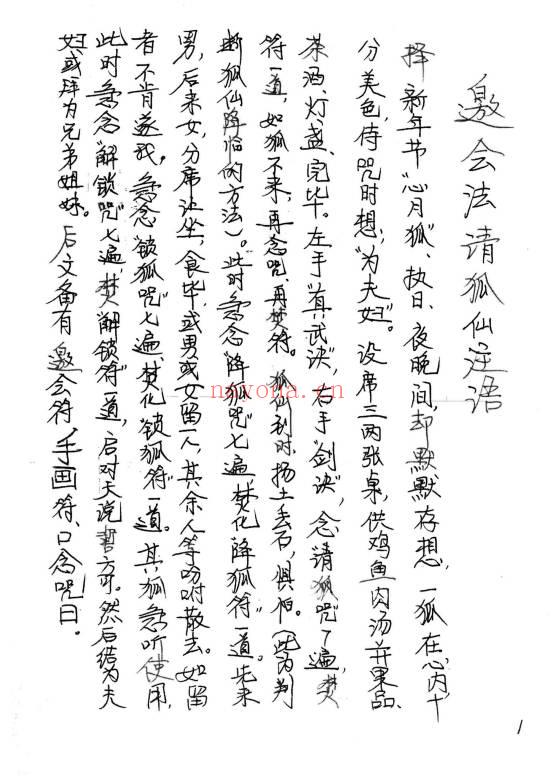 邀会法请狐仙注语
择新年节“心月狐”执日、夜晚间,却默默存想,一狐在心内,十
分美色,侍咒时想,“为夫妇”。设席三两张桌,供鸡鱼肉汤并果品、
茶酒、灯盏、完毕。左手“真武决”,右手“剑诀”,念“请狐咒”了遍,焚
符一道,如狐不来,再念咒、再焚符。狐仙到时,扬土丢石,惧怕。(此为判
断狐仙降临的方法)。此时急念“降狐咒”七遍,焚化“降狐符”一道。先来
男,后来女,分席让坐,食毕,或男或女留一人,其余人等吩咐散去。如留
者不肯遂我,急念“锁狐咒”七遍、焚化“锁狐符”一道。其狐急听使用,
此时急念“解锁咒”七遍,焚“解锁符”一道,后对天说誓方可。然后结为夫
妇或拜为兄弟姐妹。后文备有邀会符,手画符、口念咒曰。
nayona.cn
1